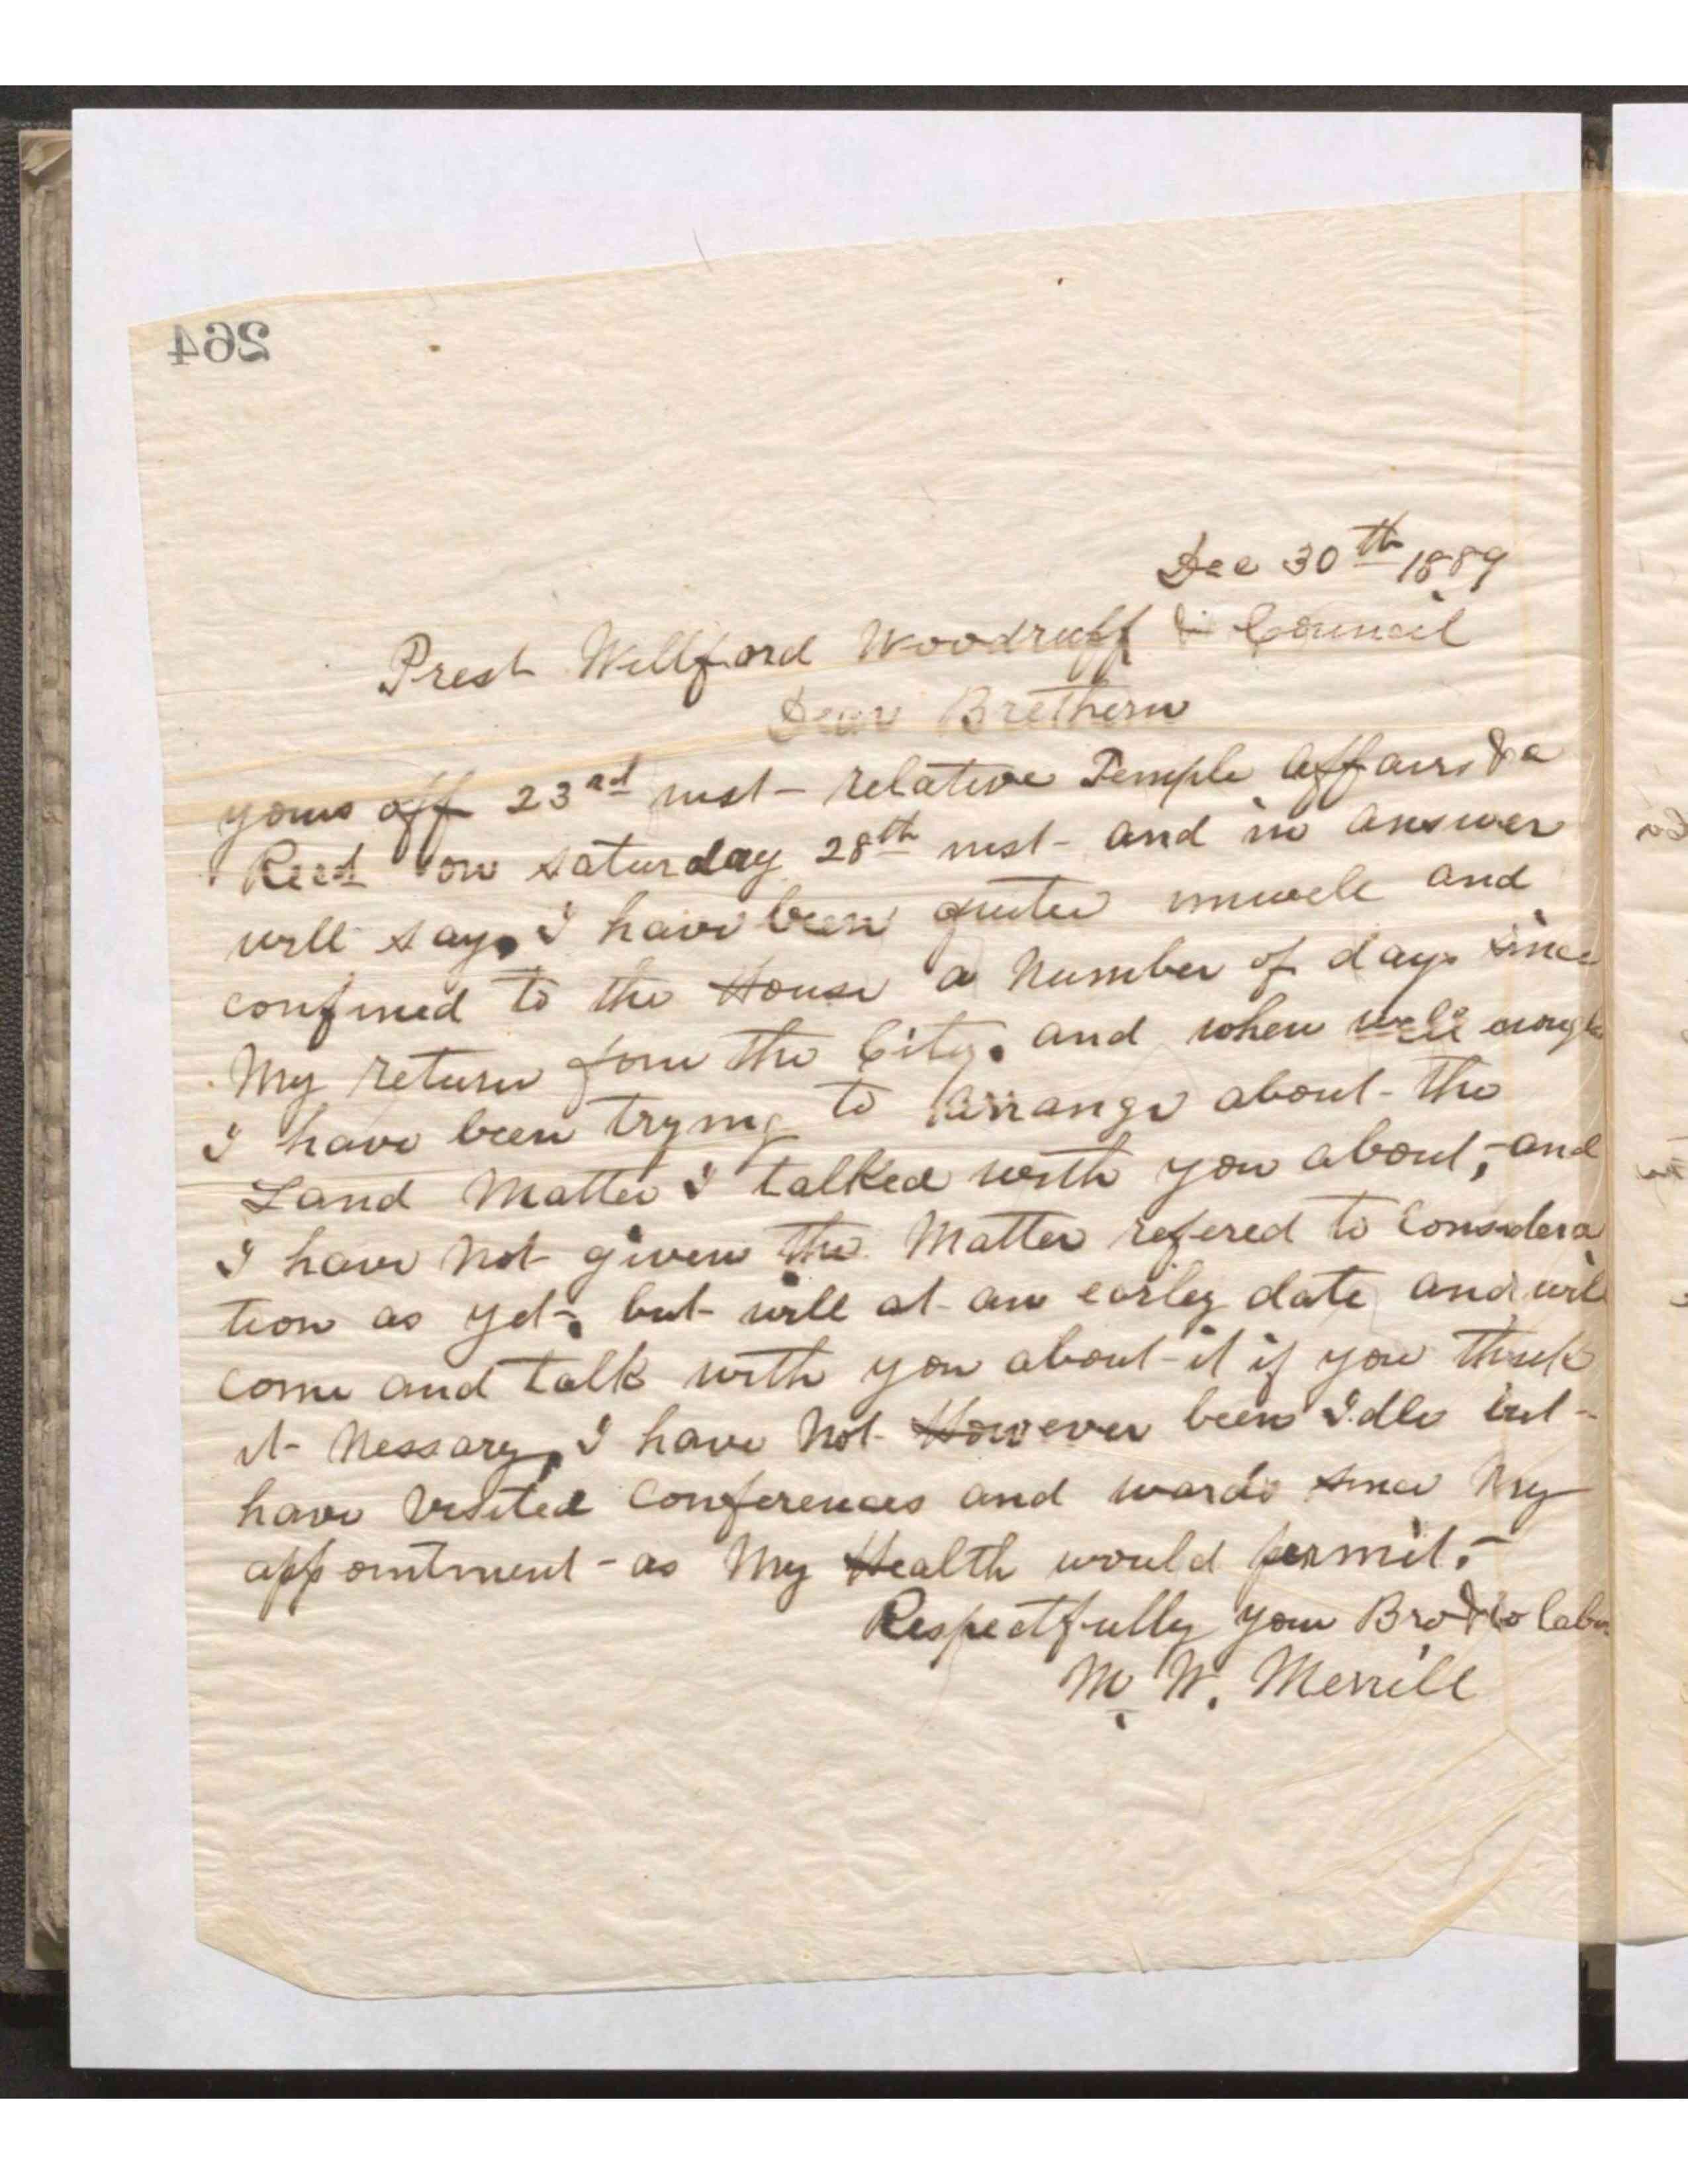 264
Dec 30th 1889
Prest Willford Woodruff & Council
Dear Brethern
yours off 23rd inst - relative Temple affairs &c
Recd on Saturday 28th inst - and in answer
will say, I have been quite unwell and
confined to the House a Number of days since
My return from the City. and when well enough
I have been trying to arrange about - the
Land Matter I talked with you about, - and
I have Not given the Matter refered to Considera
tion as yet -, but will at an earley date and will
come and talk with you about - it if you think
it - Nessary, I have Not However been Idle but -
have visited Conferences and wards since My
appointment - as My Health would permit. -
Respectfully your Bro & Co Labor
M. W. Merrill